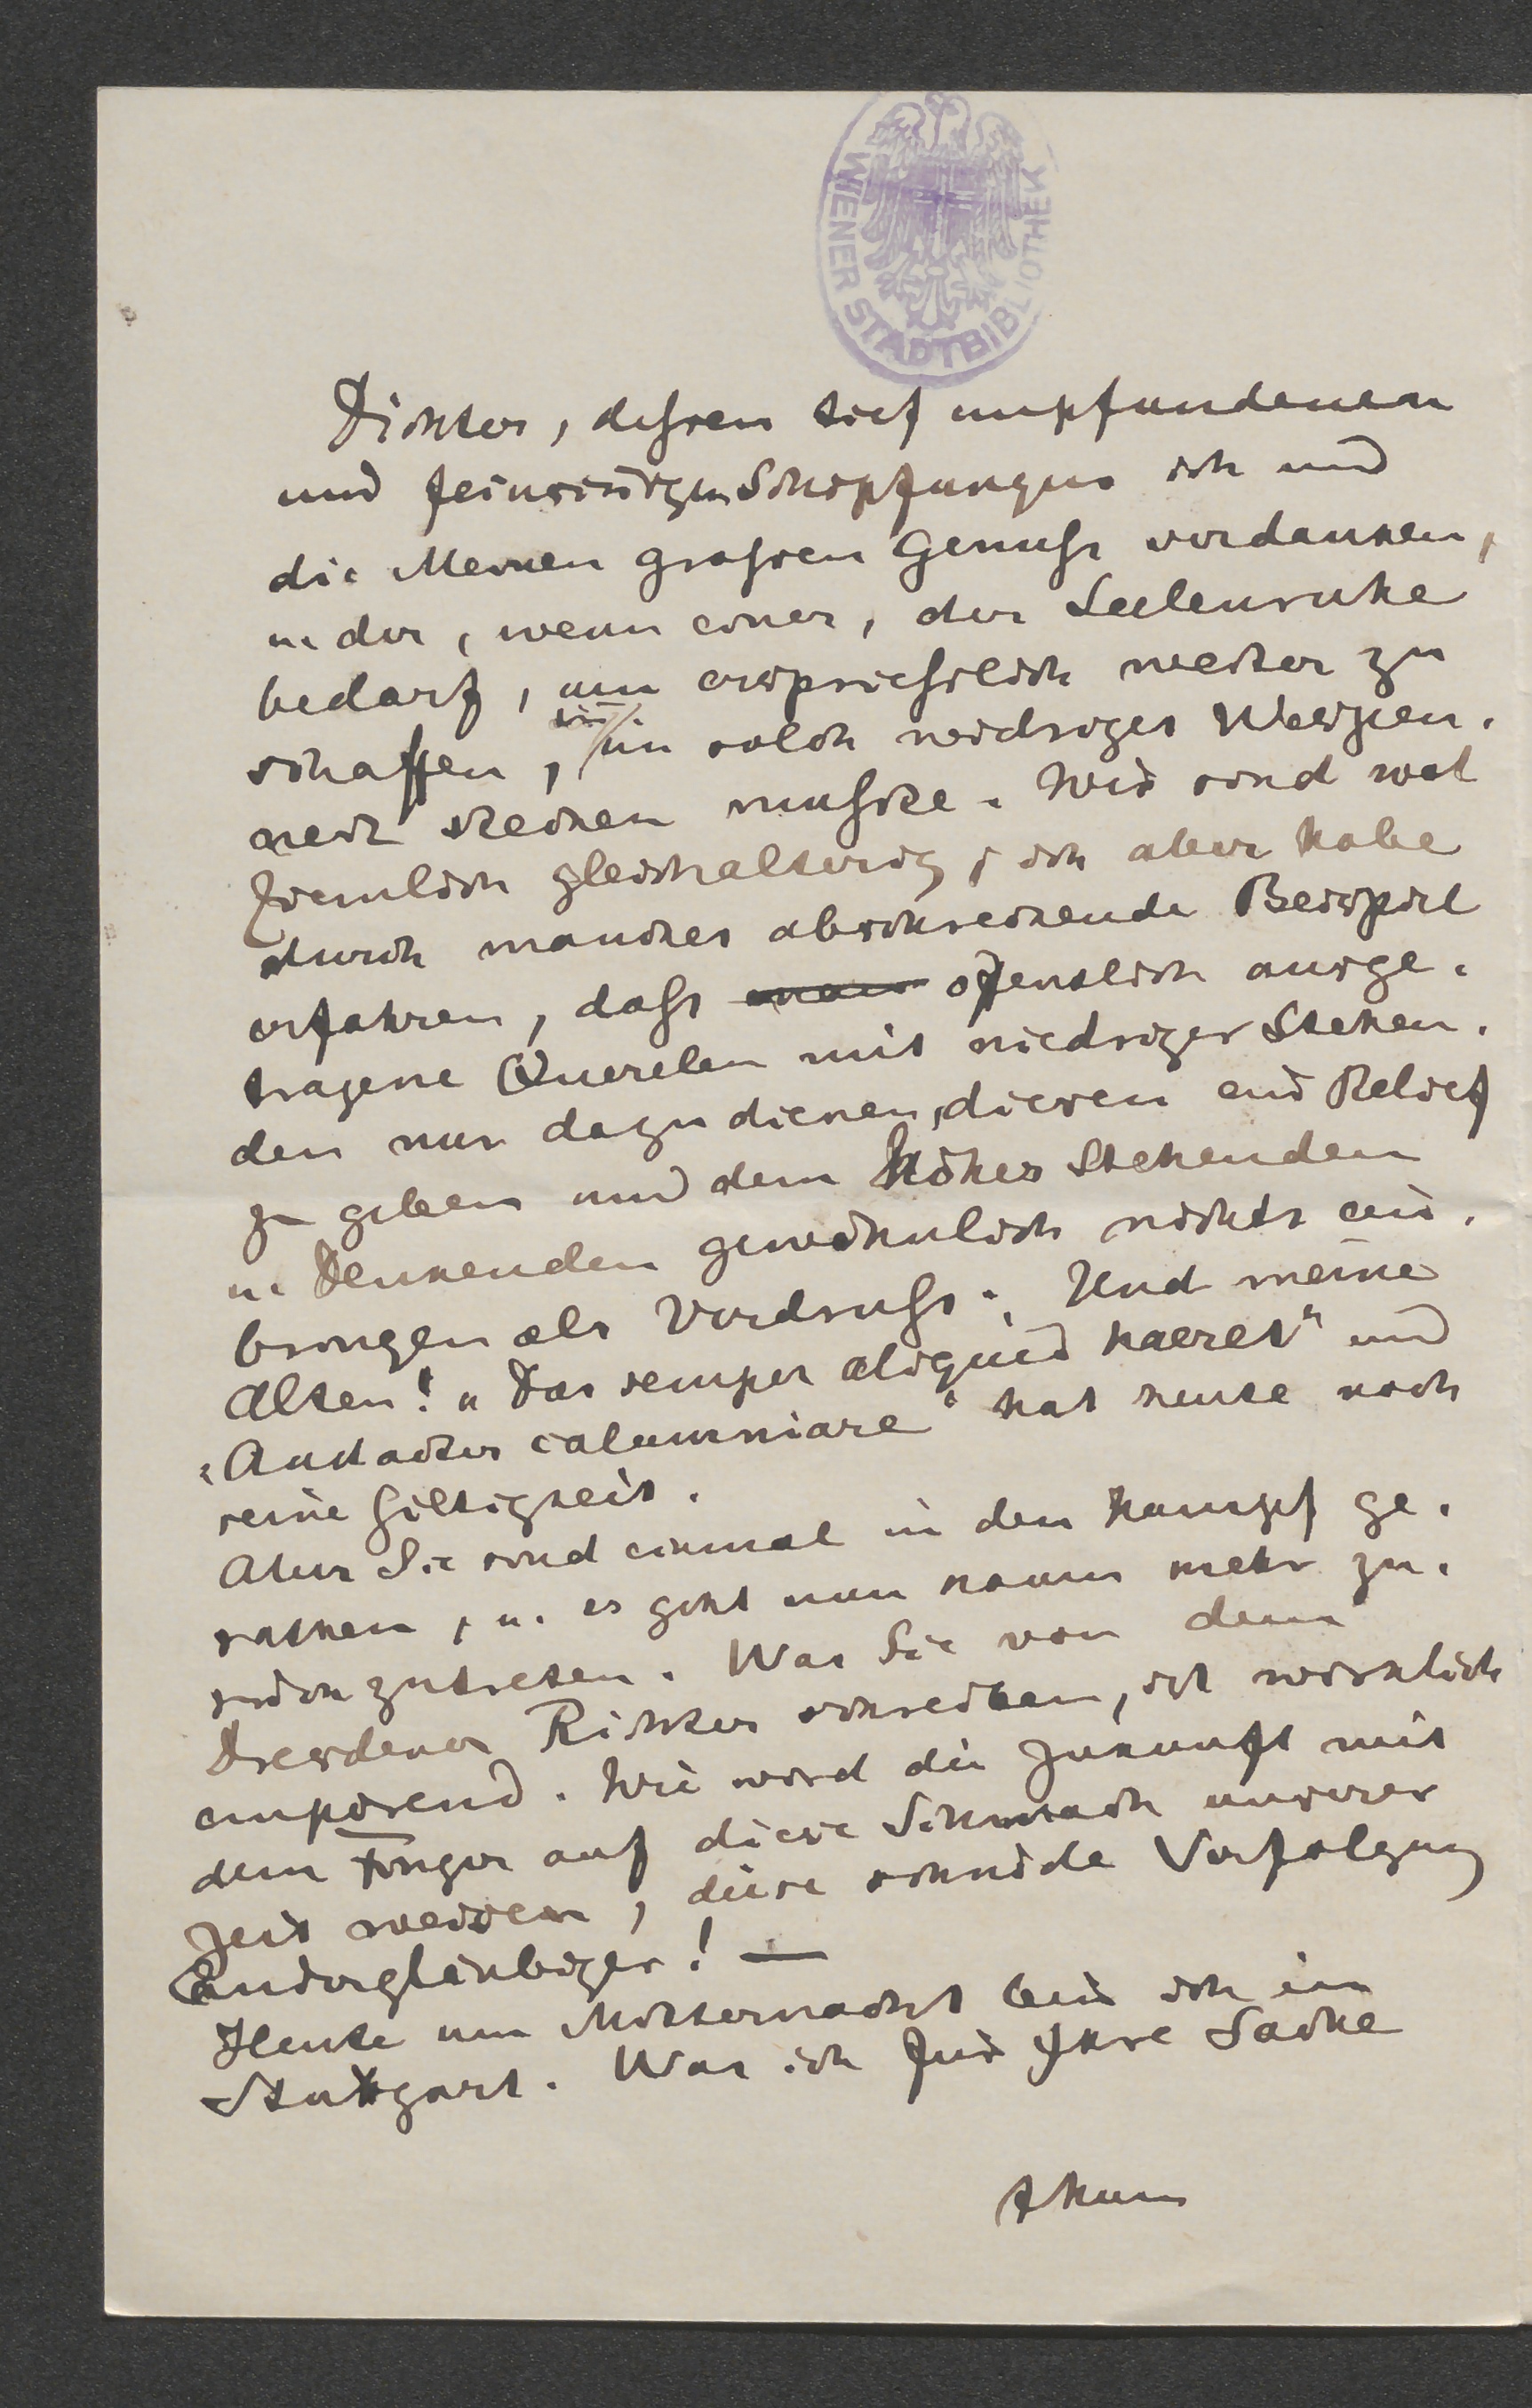 WIENER STADTBIBLIOTHEK
Dichter, deßen tief empfundenen
und feinsinnigen Schöpfungen ich und
die Meinen großen Genuß verdanken,
u. der, wenn einer, der Seelenruhe
bedarf, um ersprießlich weiter zu
schaffen, in ein solch niedriges Wespen-
nest stechen mußte. Wir sind wol
ziemlich gleichalterig, ich aber habe
durch manches abschreckende Beispiel
erfahren, daß man öffentlich ausge-
tragene Querelen mit niedriger Stehen-
den nur dazu dienen, diesen ein Relief
zu geben und dem höher Stehenden
u. Denkenden gewöhnlich nichts ein-
bringen als Verdruß. Und meine
Alten! „Das semper aliquid haeret“ und
„Audacter calumniare“ hat heute noch
seine Giltigkeit.
Aber Sie sind einmal in den Kampf ge-
rathen, u. es geht nun kaum mehr zu-
rückzutreten. Was Sie von dem
Dresdener Richter schreiben, ist wirklich
empörend. Wie wird die Zukunft mit
dem Finger auf diese Schmach unserer
Zeit weisen, diese schnöde Verfolgung
Andersgläubiger! —
Heute um Mitternacht bin ich in
Stuttgart. Was ich für Ihre Sache
thun